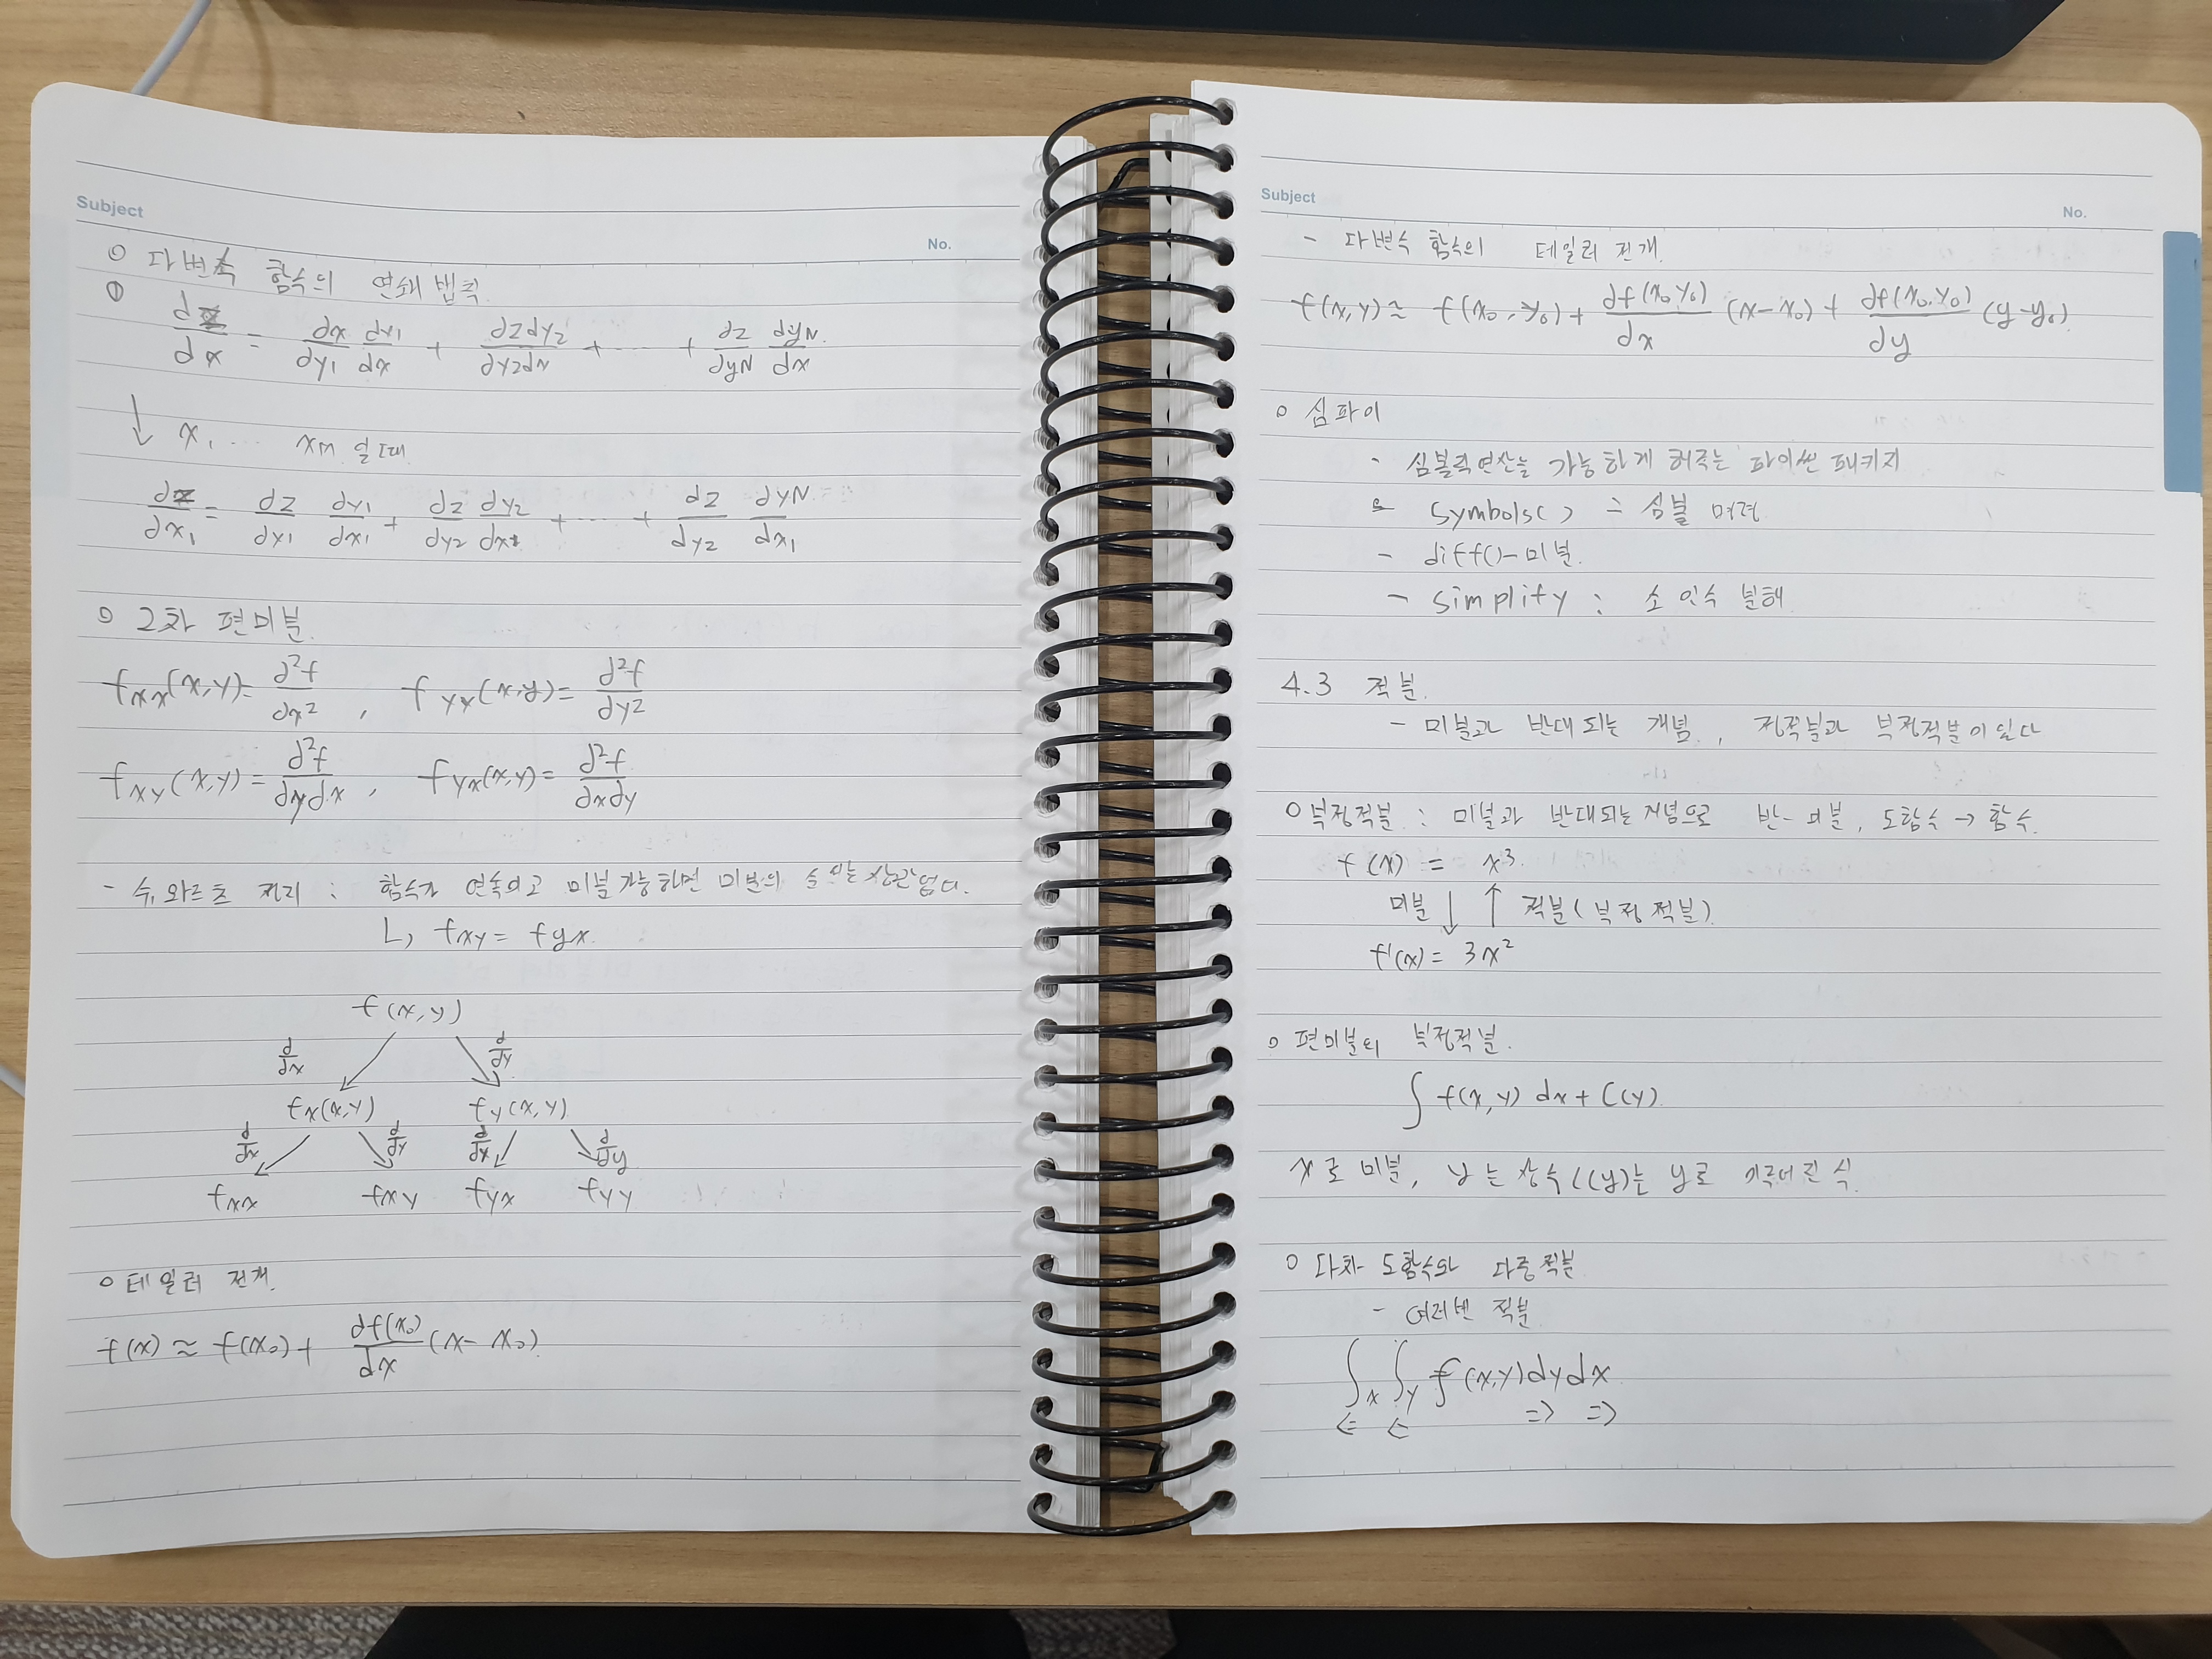 Subject
No.
○ 다변수 함수의 연쇄 법칙.
① dz/dx = ∂x/∂y1 dy1/dx + ∂z dy2/∂y2 dx + ‥‥ + ∂z/∂yN dyN/dx
↓ x1 ‥‥ xm 일때
dz/dx1 = dz/dy1 dy1/dx1 + dz/dy2 dy2/dx1 + ‥‥ + dz/dy2 dyN/dx1
○ 2차 편미분.
fxx(x,y) = ∂²f/∂x² , fyy(x,y) = ∂²f/∂y2
fxy(x,y) = ∂²f/∂y∂x , fyx(x,y) = ∂²f/∂x∂y
- 슈와르츠 정리 : 함수가 연속이고 미분가능하면 미분의 순서는 상관없다.
L, fxy = fyx.
f(x,y)
d/dx d/dy
fx(x,y) fy(x,y)
d/dx d/dy d/dx d/dy
fxx fxy fyx fyy
○ 테일러 전개.
f(x) ≈ f(x0) + df(x0)/dx (x - x0)
Subject
No.
- 다변수 함수의 테일러 전개.
f(x,y) ≈ f(x0, y0) + ∂f(x0 y0)/∂x (x-x0) + ∂f(x0, y0)/∂y (y-y0)
○ 심파이
- 심볼릭연산을 가능하게 해주는 파이썬 패키지
- symbols() - 심볼
- diff() - 미분.
- simplity : 소인수 분해
4.3 적분.
- 미분과 반대되는 개념, 정적분과 부정적분이 있다
○ 부정적분 : 미분과 반대되는 개념으로 반-미분, 도함수 → 함수.
f(x) = x³.
미분 ↓ ↑ 적분(부정적분).
f'(x) = 3x²
○ 편미분의 부정적분.
∫ f(x,y) dx + C(y).
x로 미분, y는 상수 C(y)는 y로 이루어진 식.
○ 다차 도함수와 다중적분
- 여러번 적분
∫x ∫y f(x,y)dydx
⇐ ⇐ ⇒ ⇒